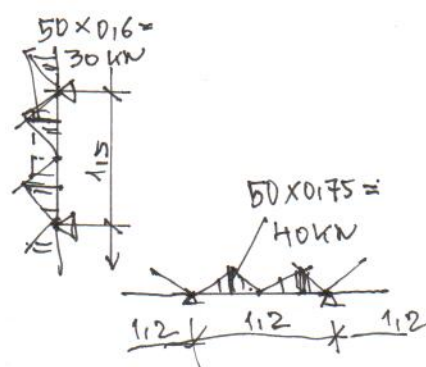 50×0,6=
30 KN
1,5
50×0,75=
40KN
1,2 1,2 1,2